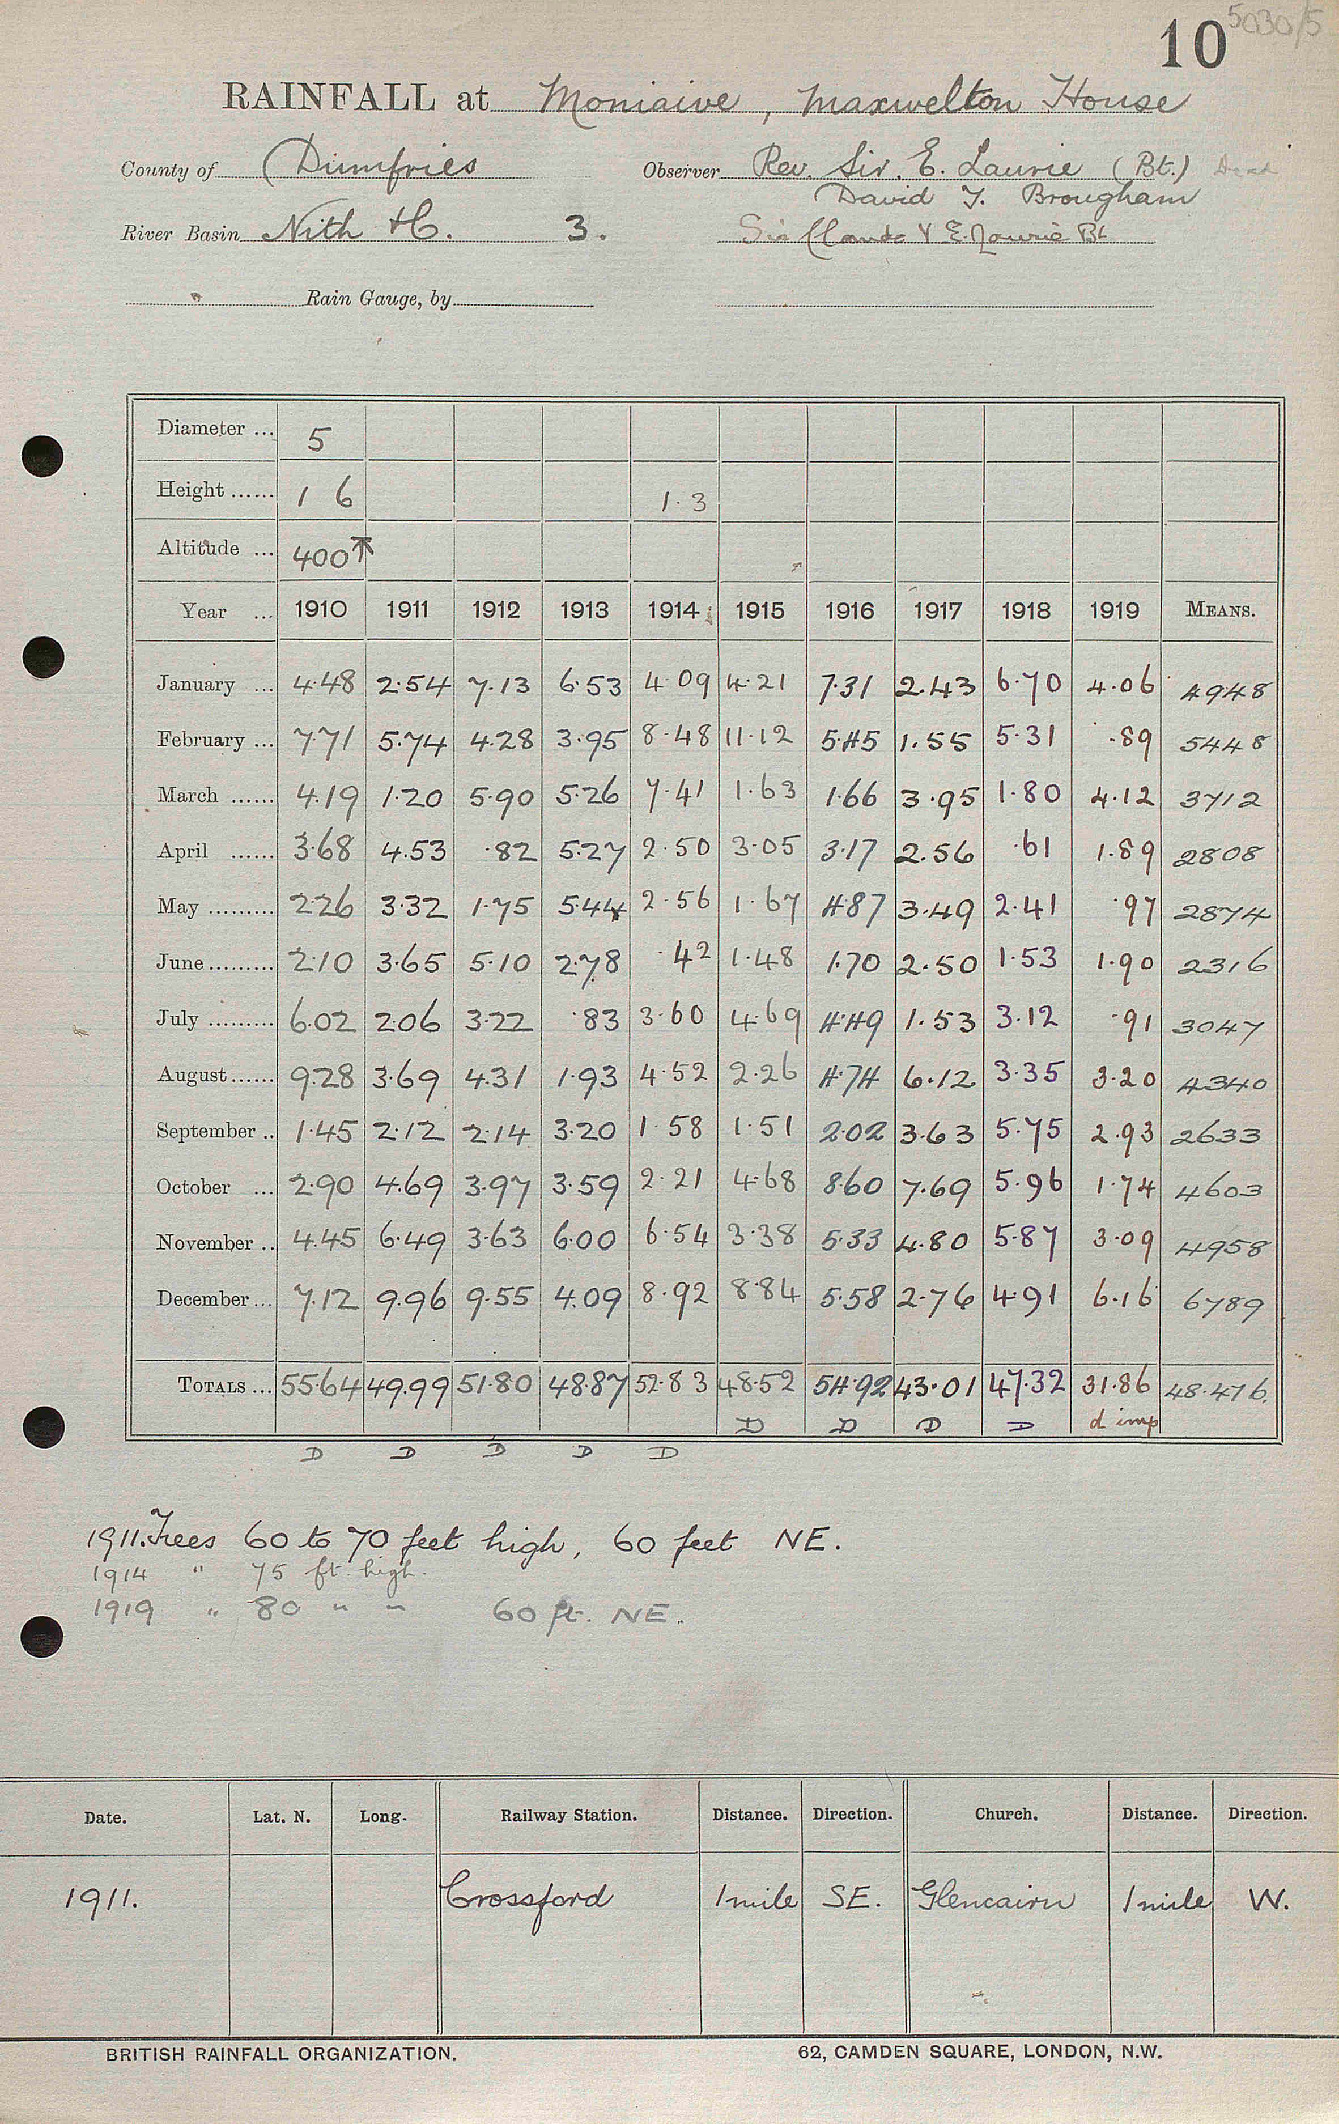 5030/5
10
RAINFALL at Moniaive, Maxwelton House
County of Dumfries Observer Rev. Sir. E. Laurie (Bt.) Dead
David T. Brougham
River Basin Nith &c. 3. Sir Claude V E. Laurie Bt
Rain Gauge, by
Diameter ... 5
Height ...... 1 6 1.3
Altitude ... 400
Year ... 1910 1911 1912 1913 1914 1915 1916 1917 1918 1919 MEANS.
January ... 4.48 2.54 7.13 6.53 4.09 4.21 7.31 2.43 6.70 4.06 4948
February ... 7.71 5.74 4.28 3.95 8.48 11.12 5.45 1.55 5.31 .89 5448
March ...... 4.19 1.20 5.90 5.26 7.41 1.63 1.66 3.95 1.80 4.12 3712
April ...... 3.68 4.53 .82 5.27 2.50 3.05 3.17 2.56 .61 1.89 2808
May ......... 2.26 3.32 1.75 5.44 2.56 1.67 4.87 3.49 2.41 .97 2874
June ......... 2.10 3.65 5.10 2.78 .42 1.48 1.70 2.50 1.53 1.90 2316
July ......... 6.02 2.06 3.22 .83 3.60 4.69 4.49 1.53 3.12 .91 3047
August ...... 9.28 3.69 4.31 1.93 4.52 2.26 4.74 6.12 3.35 3.20 4340
September .. 1.45 2.12 2.14 3.20 1.58 1.51 2.02 3.63 5.75 2.93 2633
October ... 2.90 4.69 3.97 3.59 2.21 4.68 8.60 7.69 5.96 1.74 4603
November .. 4.45 6.49 3.63 6.00 6.54 3.38 5.33 4.80 5.87 3.09 4958
December ... 7.12 9.96 9.55 4.09 8.92 8.84 5.58 2.76 4.91 6.16 6789
TOTALS ... 55.64 49.99 51.80 48.87 52.83 48.52 54.92 43.01 47.32 31.86 48.476.
D D D D d imp
D D D D D
1911. Trees 60 to 70 feet high, 60 feet NE.
1914 " 75 ft. high.
1919 " 80 " " 60 ft. NE.
Date. Lat. N. Long. Railway Station. Distance. Direction. Church. Distance. Direction.
1911. Crossford 1 mile SE. Glencairn 1 mile W.
BRITISH RAINFALL ORGANIZATION. 62, CAMDEN SQUARE, LONDON, N.W.